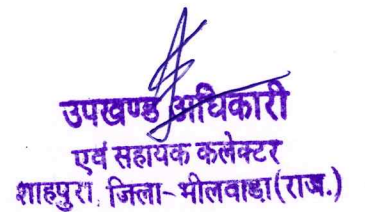 उपखण्ड अधिकारी
एवं सहायक कलेक्टर
शाहपुरा, जिला-भीलवाडा(राज.)